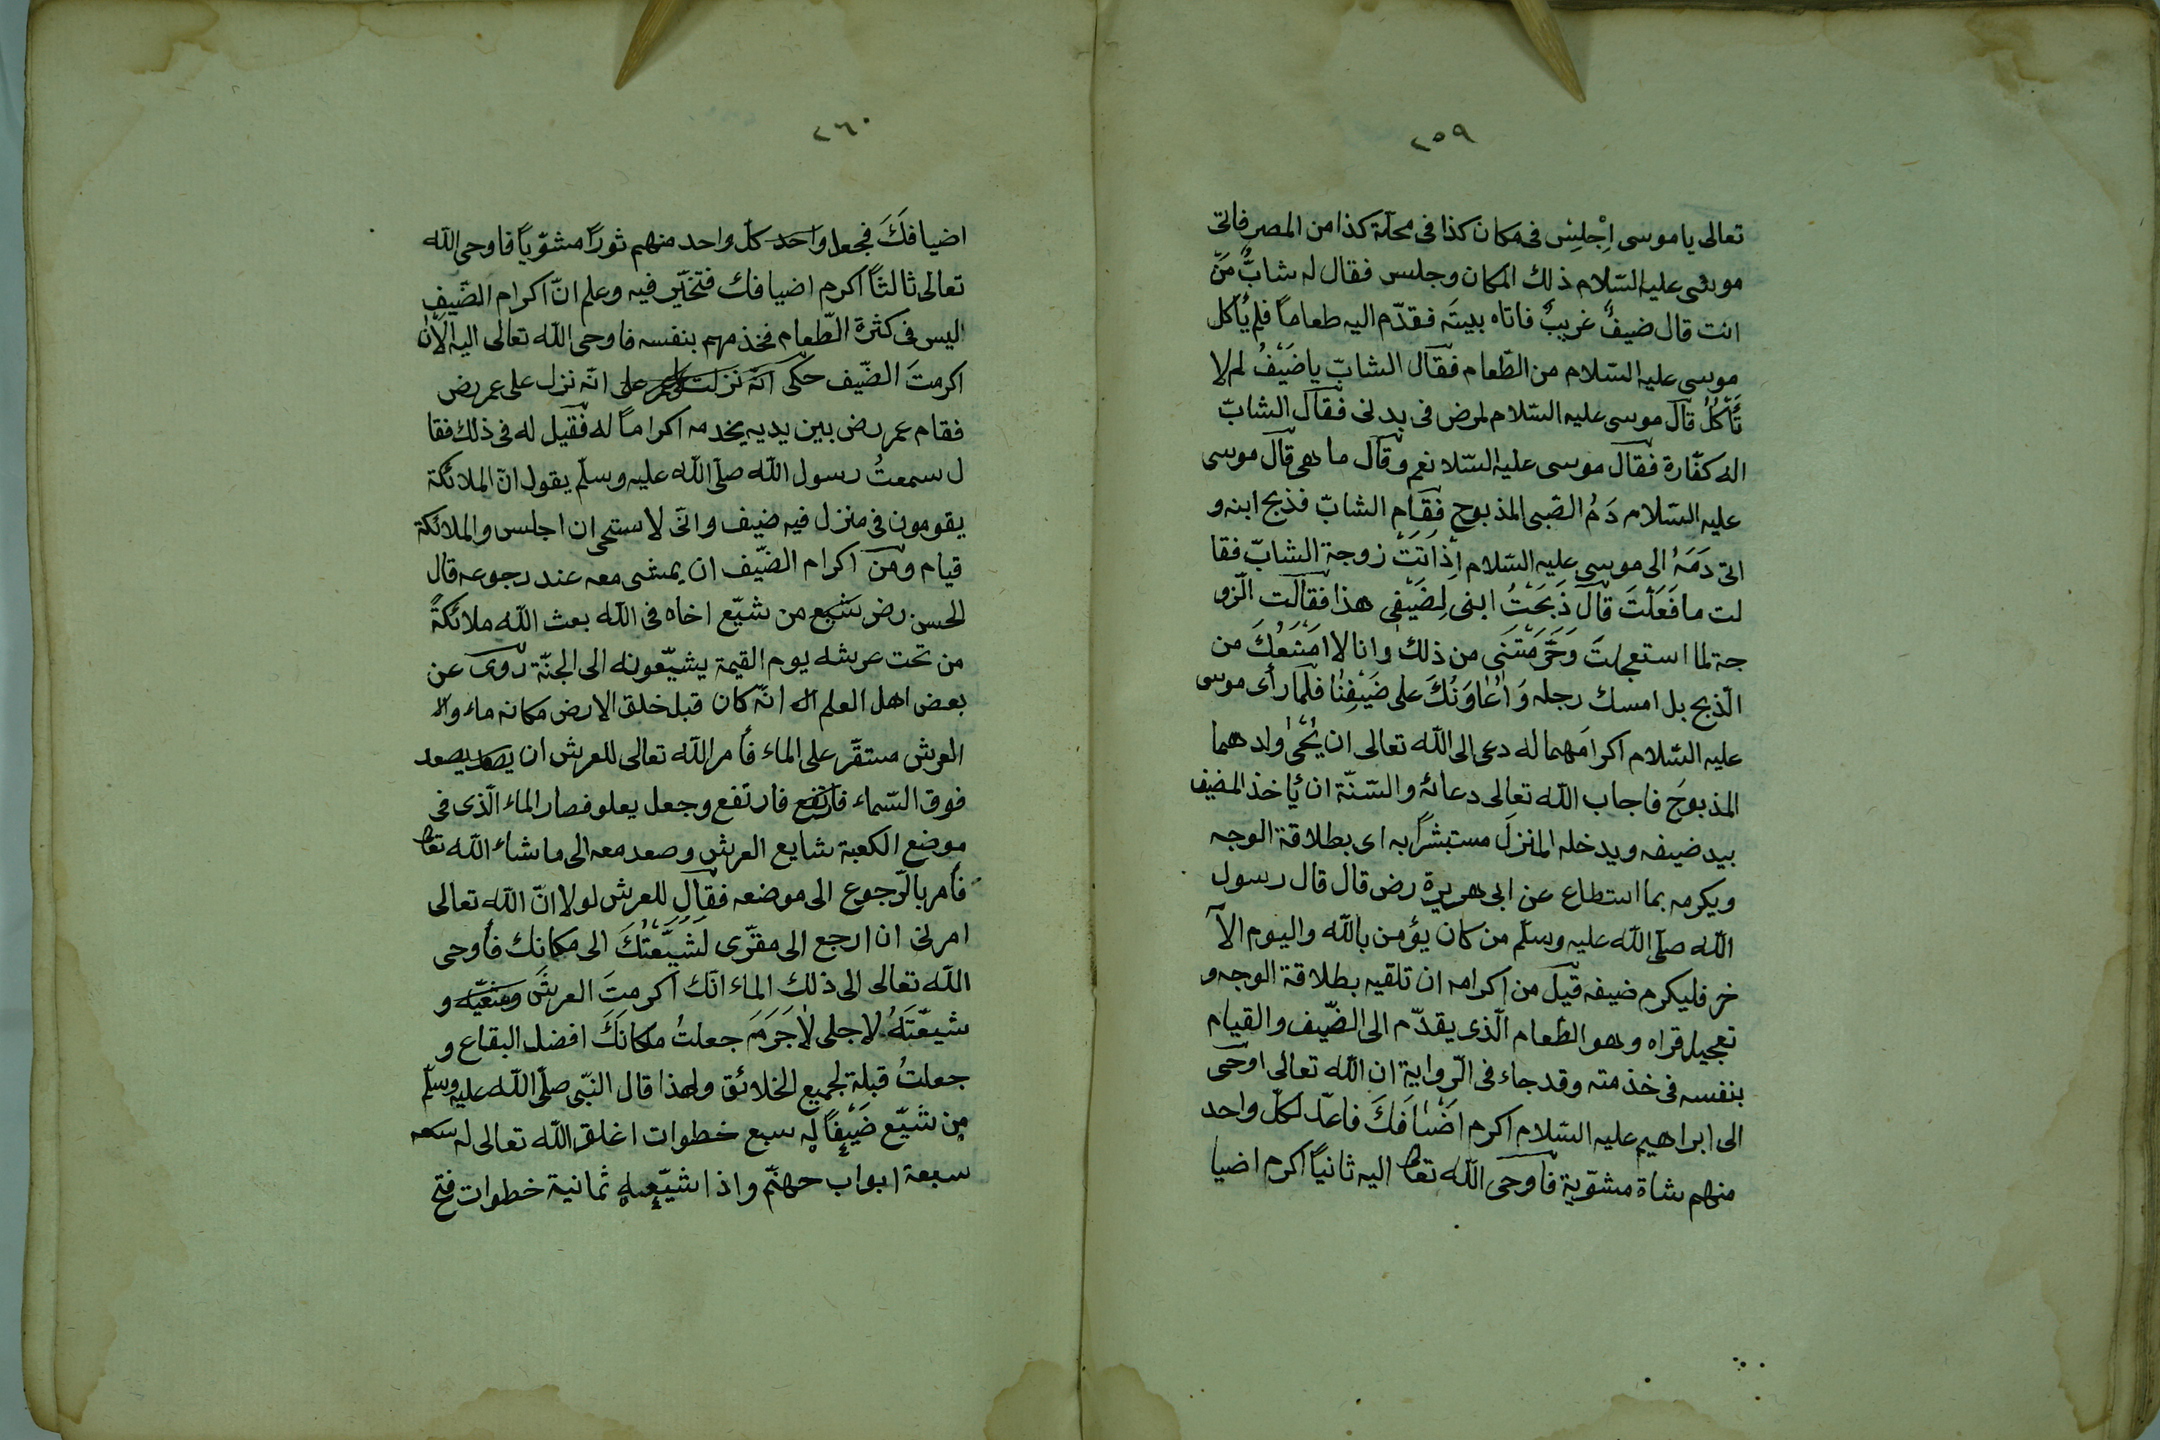 ٢٥٩
تعالى يا موسى اِجْلِسْ فى مكان كذا فى محلّة كذا من المصر فاتى
موسى عليه السّلام ذلك المكان وجلس فقال له شابٌّ مَنْ
انت قال ضيفٌ غريبٌ فاتاه بيتَه فقدّم اليه طعاماً فلم يأكل
موسى عليه السّلام من الطّعام فقال الشابّ يا ضَيْفُ لم لا
تَأْكُلُ قال موسى عليه السّلام لمرض فى بدنى فقال الشابّ
اله كفّارة فقال موسى عليه السّلا نعم وقال ما هى قال موسى
عليه السّلام دَمُ الصّبى المذبوح فقام الشابّ فذبح ابنه و
اتى دَمَهُ الى موسى عليه السّلام اِذْ اَتَتْ زوجة الشابّ فقا
لت ما فَعَلْتَ قال ذَبَحْتُ ابنى لِضَيْفِى هذا فقالت الزّو
جة لما استعجلتَ وَحَرَمْتَنى من ذلك وانا لا اَمْنَعُكَ من
الّذبح بل امسك رجله وَاُعَاوَنُكَ على ضَيْفِنَا فلمّا رأى موسى
عليه السّلام اكرامَهما له دعى الى الله تعالى ان يُحْيى ولدهما
المذبوحَ فاجاب الله تعالى دعائه والسّنّة ان يأخذ المضيف
بيد ضيفه ويدخله المنزل مستبشراً به اى بطلاقة الوجه
ويكرمه بما استطاع عن ابى هريرة رض قال قال رسول
الله صلّى الله عليه وسلّم من كان يؤمن بالله واليوم الآ
خر فليكرم ضيفه قيل من اكرامه ان تلقيه بطلاقة الوجه و
تعجيل قراه وهو الطّعام الّذى يقدّم الى الضّيف والقيام
بنفسه فى خذمته وقد جاء فى الرّواية ان الله تعالى اوحى
الى ابراهيم عليه السّلام اكرم اَضْيَافَكَ فاعدّ لكلّ واحد
منهم شاة مشوّية فاوحى الله تعا اليه ثانياً اكرم اضيا
٢٦٠
اضيافَكَ فجعل واحد كلّ واحد منهم ثوراً مشوّياً فاوحى الله
تعالى ثالثاً اكرم اضيافك فتحيّر فيه وعلم انّ اكرام الضّيف
ليس فى كثرة الطّعام فخذمهم بنفسه فاوحى الله تعالى اليه الآن
اكرمتَ الضّيف حكى انّه نزلت على انّه نزل على عمر رض
فقام عمر رض بين يديه يخدمه اكراماً له فقيل له فى ذلك فقا
ل سمعتُ رسول الله صلّى الله عليه وسلّم يقول انّ الملائكة
يقومون فى منزل فيه ضيف وانّى لاستحى ان اجلس والملائكة
قيام ومن اكرام الضّيف ان يمشى معه عند رجوعه قال
الحسن رض شيع من شيّع اخاه فى الله بعث الله ملائكةً
من تحت عرشه يوم القيمة يشيّعونه الى الجنّة روى عن
بعض اهل العلم انّه كان قبل خلق الارض مكانه ماء وا
العرش مستقّر على الماء فأمر الله تعالى للعرش ان يصعد يصعد
فوق السّماء فارتفع فارتفع وجعل يعلو فصار الماء الّذى فى
موضع الكعبة شايع العرش وصعد معه الى ما شاء الله تعا
فأمر بالرّجوع الى موضعه فقال للعرش لولا انّ الله تعالى
امرنى ان ارجع الى مقرّى لَشَيَّعْتُكَ الى مكانك فأوحى
الله تعالى الى ذلك الماء انّك اكرمتَ العرش و
شيّعْتَهُ لاجلى لاَجَرَمَ جعلتُ مكانَكَ افضل البقاع و
جعلتُ قبلة لجميع الخلائق ولهذا قال النّبّى صلّى الله عليه وسلّم
من شيّع ضَيْفاً له سبع خطوات اغلق الله تعالى له سعه
سبعة ابواب جهنّم واذا شيّعه ثمانية خطوات فتح